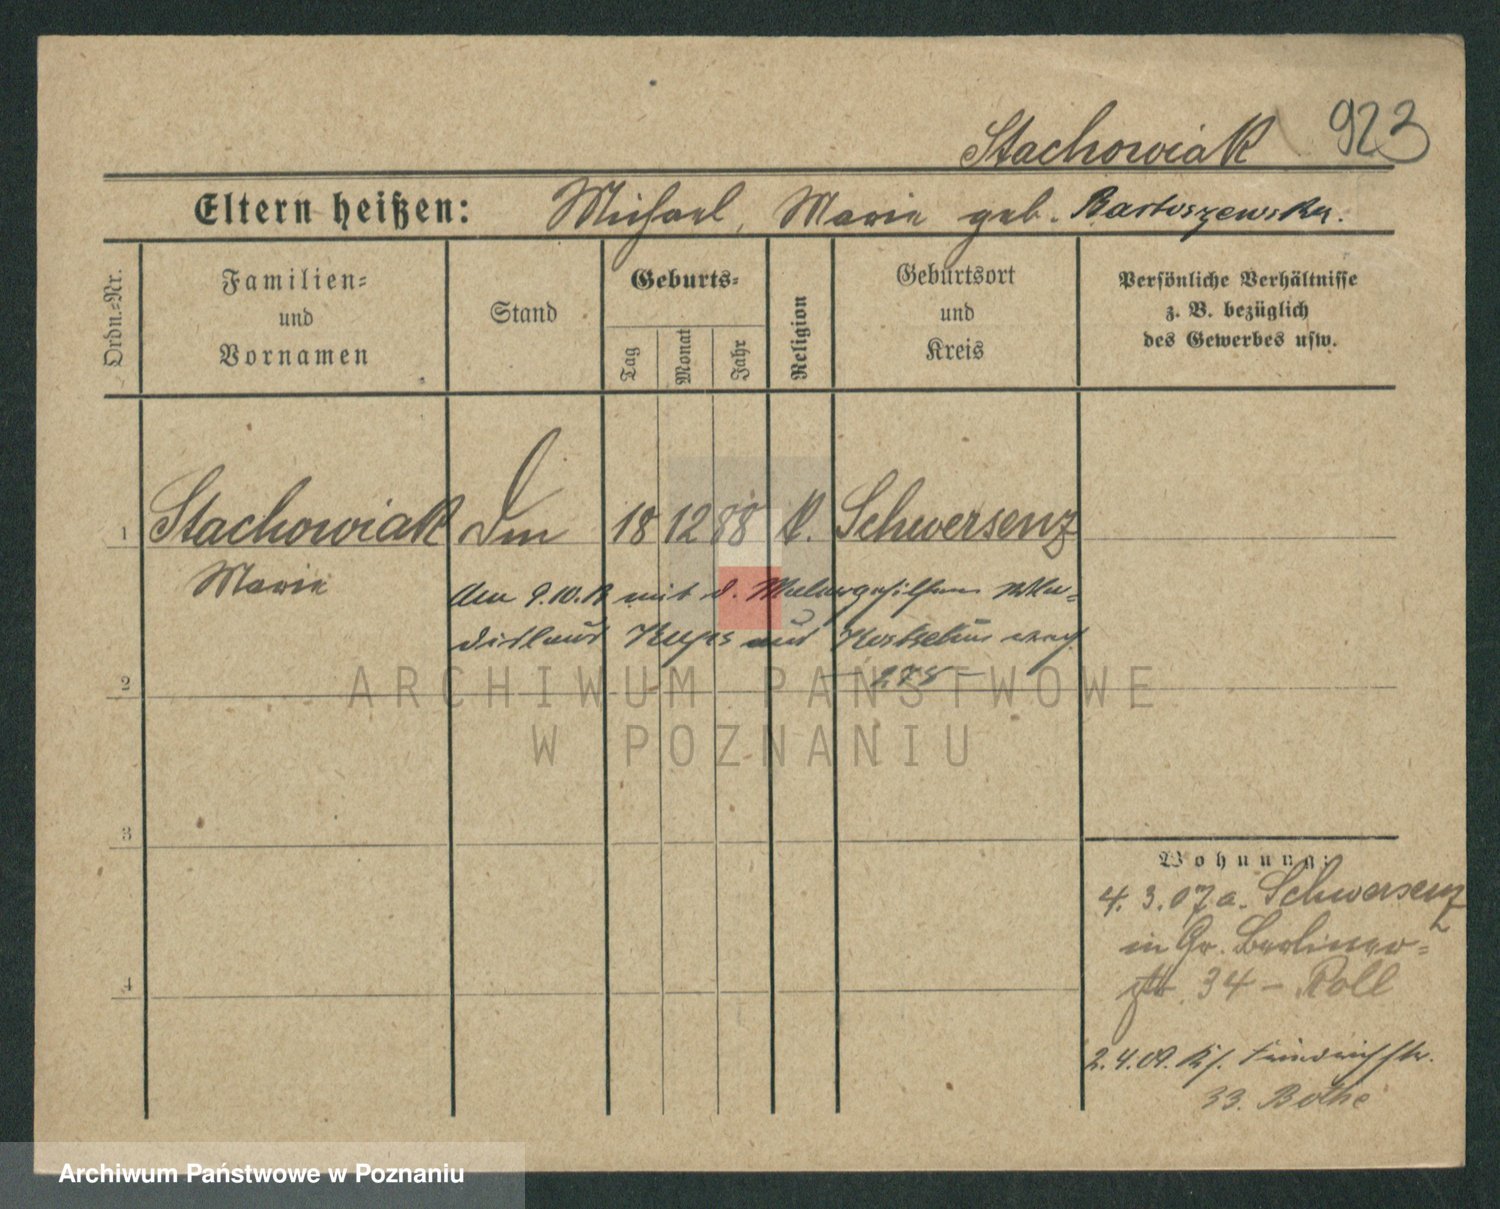 Stachowiak 923
Eltern heißen: Michael, Marie geb. Bartoszewska.
Ordn.-Nr.
Familien-
und
Vornamen
Stand
Geburts-
Tag
Monat
Jahr
Religion
Geburtsort
und
Kreis
Persönliche Verhältnisse
z. B. bezüglich
des Gewerbes usw.
1 Stachowiak 18 12 88 k. Schwersenz
Marie
Am 9.10. mit d. Malergehilfen
aus
2
278 -
ARCHIWUM PAŃSTWOWE
W POZNANIU
3
Wohnung:
4. 3. 07 a. Schwersenz
in Gr. Berliner-
4
str. 34 - Roll
2. 4. 09. Friedrichstr.
33. Bothe
Archiwum Państwowe w Poznaniu